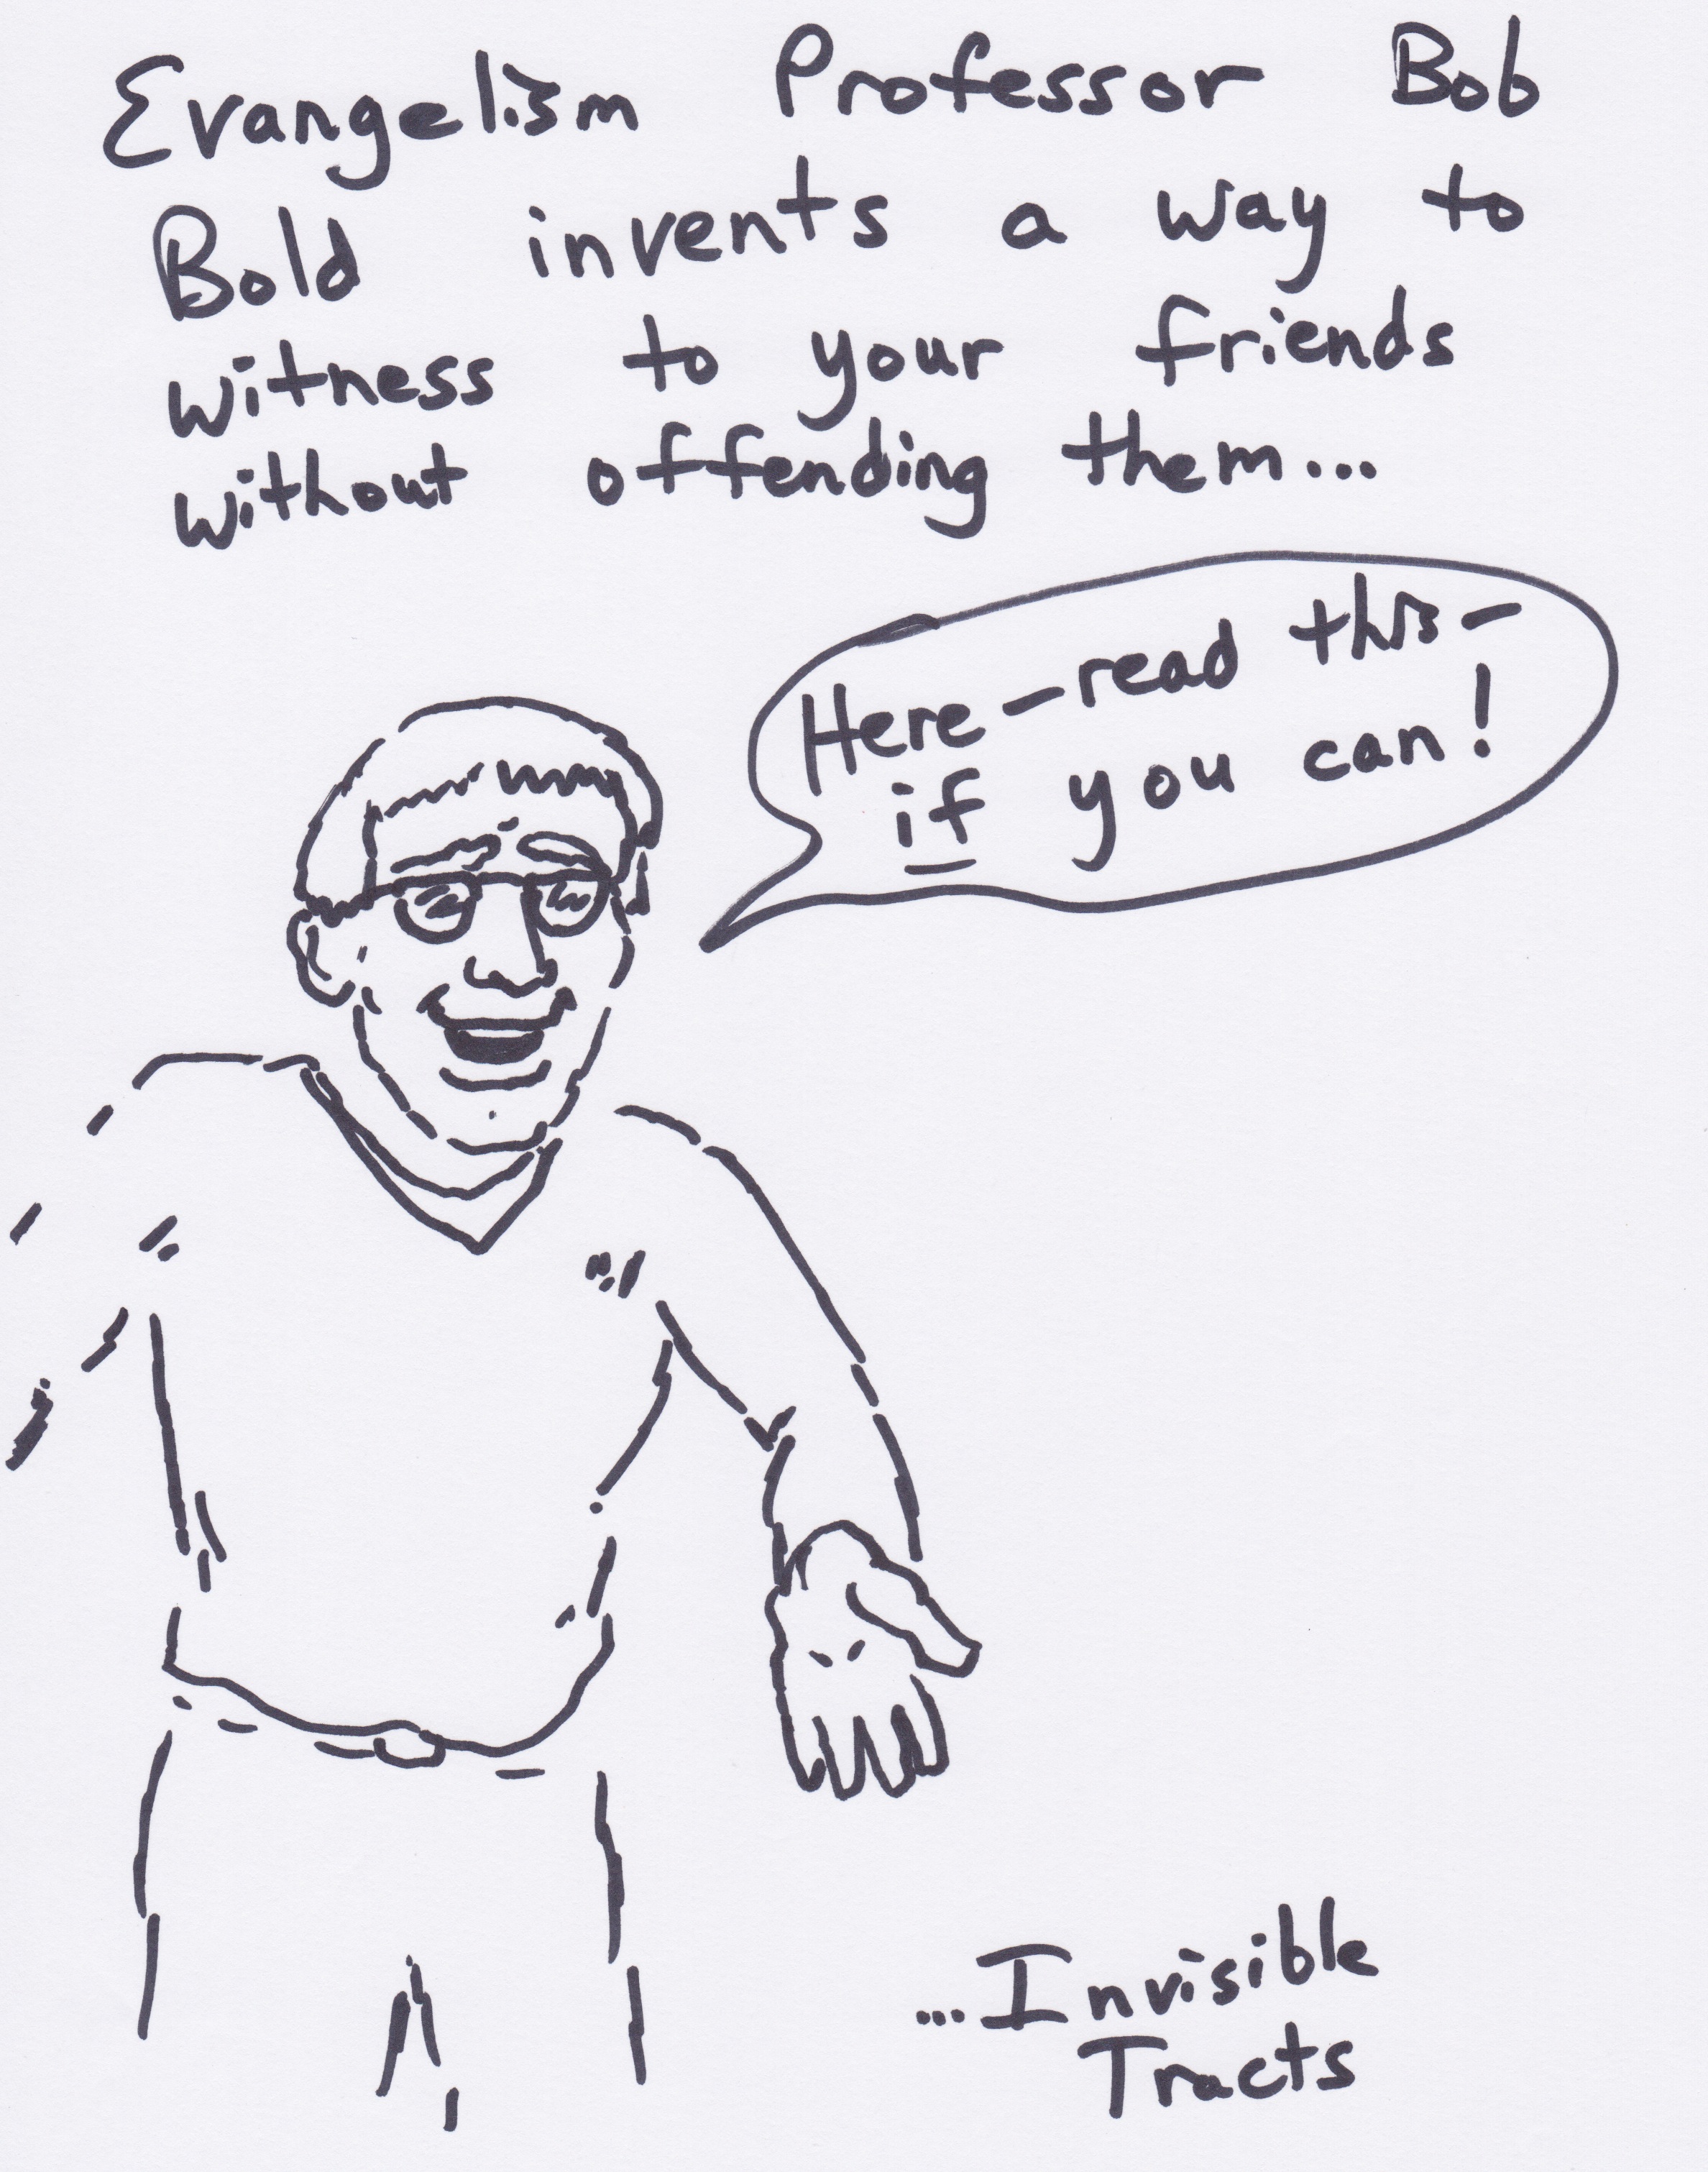 Evangelism Professor Bob
Bold invents a way to
witness to your friends
without offending them...
Here - read this -
if you can!
...Invisible
Tracts